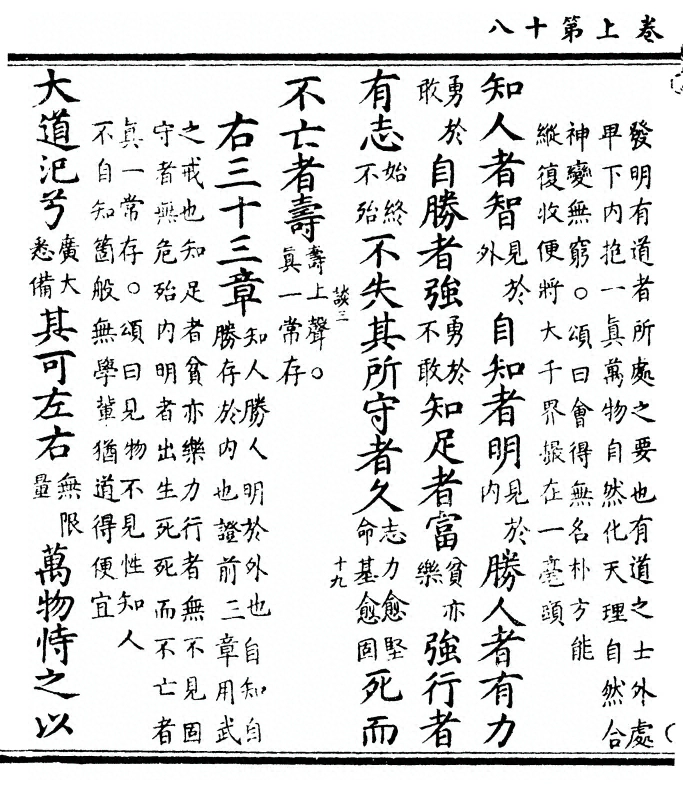 卷上第十八
發明有道者所處之要也有道之士外處
卑下内抱一眞萬物自然化天理自然合
神變無窮○頌曰會得無名朴方能
縱復收便將大千界撮在一毫頭
知人者智見於外自知者明見於内勝人者有力
勇於敢自勝者強勇於不敢知足者富貧亦樂強行者
有志始終不殆不失其所守者久志力愈堅命基愈固死而
談三 十九
不亡者壽壽上聲○眞一常存
右三十三章知人勝人明於外也自知自勝存於内也證前三章用武
之戒也知足者貧亦樂力行者無不見固
守者無危殆内明者出生死死而不亡者
眞一常存○頌曰見物不見性知人
不自知箇般無學輩猶道得便宜
大道汜兮廣大悉備其可左右無限量萬物恃之以